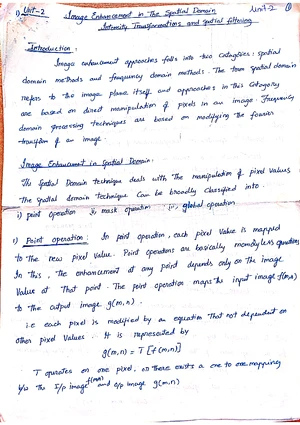 Unit-2 Image Enhancement in The Spatial Domain Unit-2 ①
Intensity Transformations and spatial filtering
Introduction :
Image enhancement approaches falls into two categories : spatial
domain methods and frequency domain methods. The term spatial domain
refers to the image plane itself and approaches in this category
are based on direct manipulation of pixels in an image. Frequency
domain processing techniques are based on modifying the fourier
transform of an image.
Image Enhancement in spatial Domain:
The spatial Domain technique deals with The manipulation of pixel values
The spatial domain Technique Can be broadly classified into
i) point operation ii) mask operation iii) global operation
1) Point operation : In point operation, each pixel value is mapped
to the new pixel value. Point operations are basically memory less operations
In this, the enhancement at any point depends only on the image
Value at That point. The point operation maps the input image f(m,n)
to the output image g(m,n).
i.e each pixel is modified by an equation That not dependent on
other pixel values. It is represented by
g(m,n) = T [f(m,n)]
T operates on one pixel, or there exists a one to one mapping
b/w the i/p image f(m,n) and o/p image g(m,n)